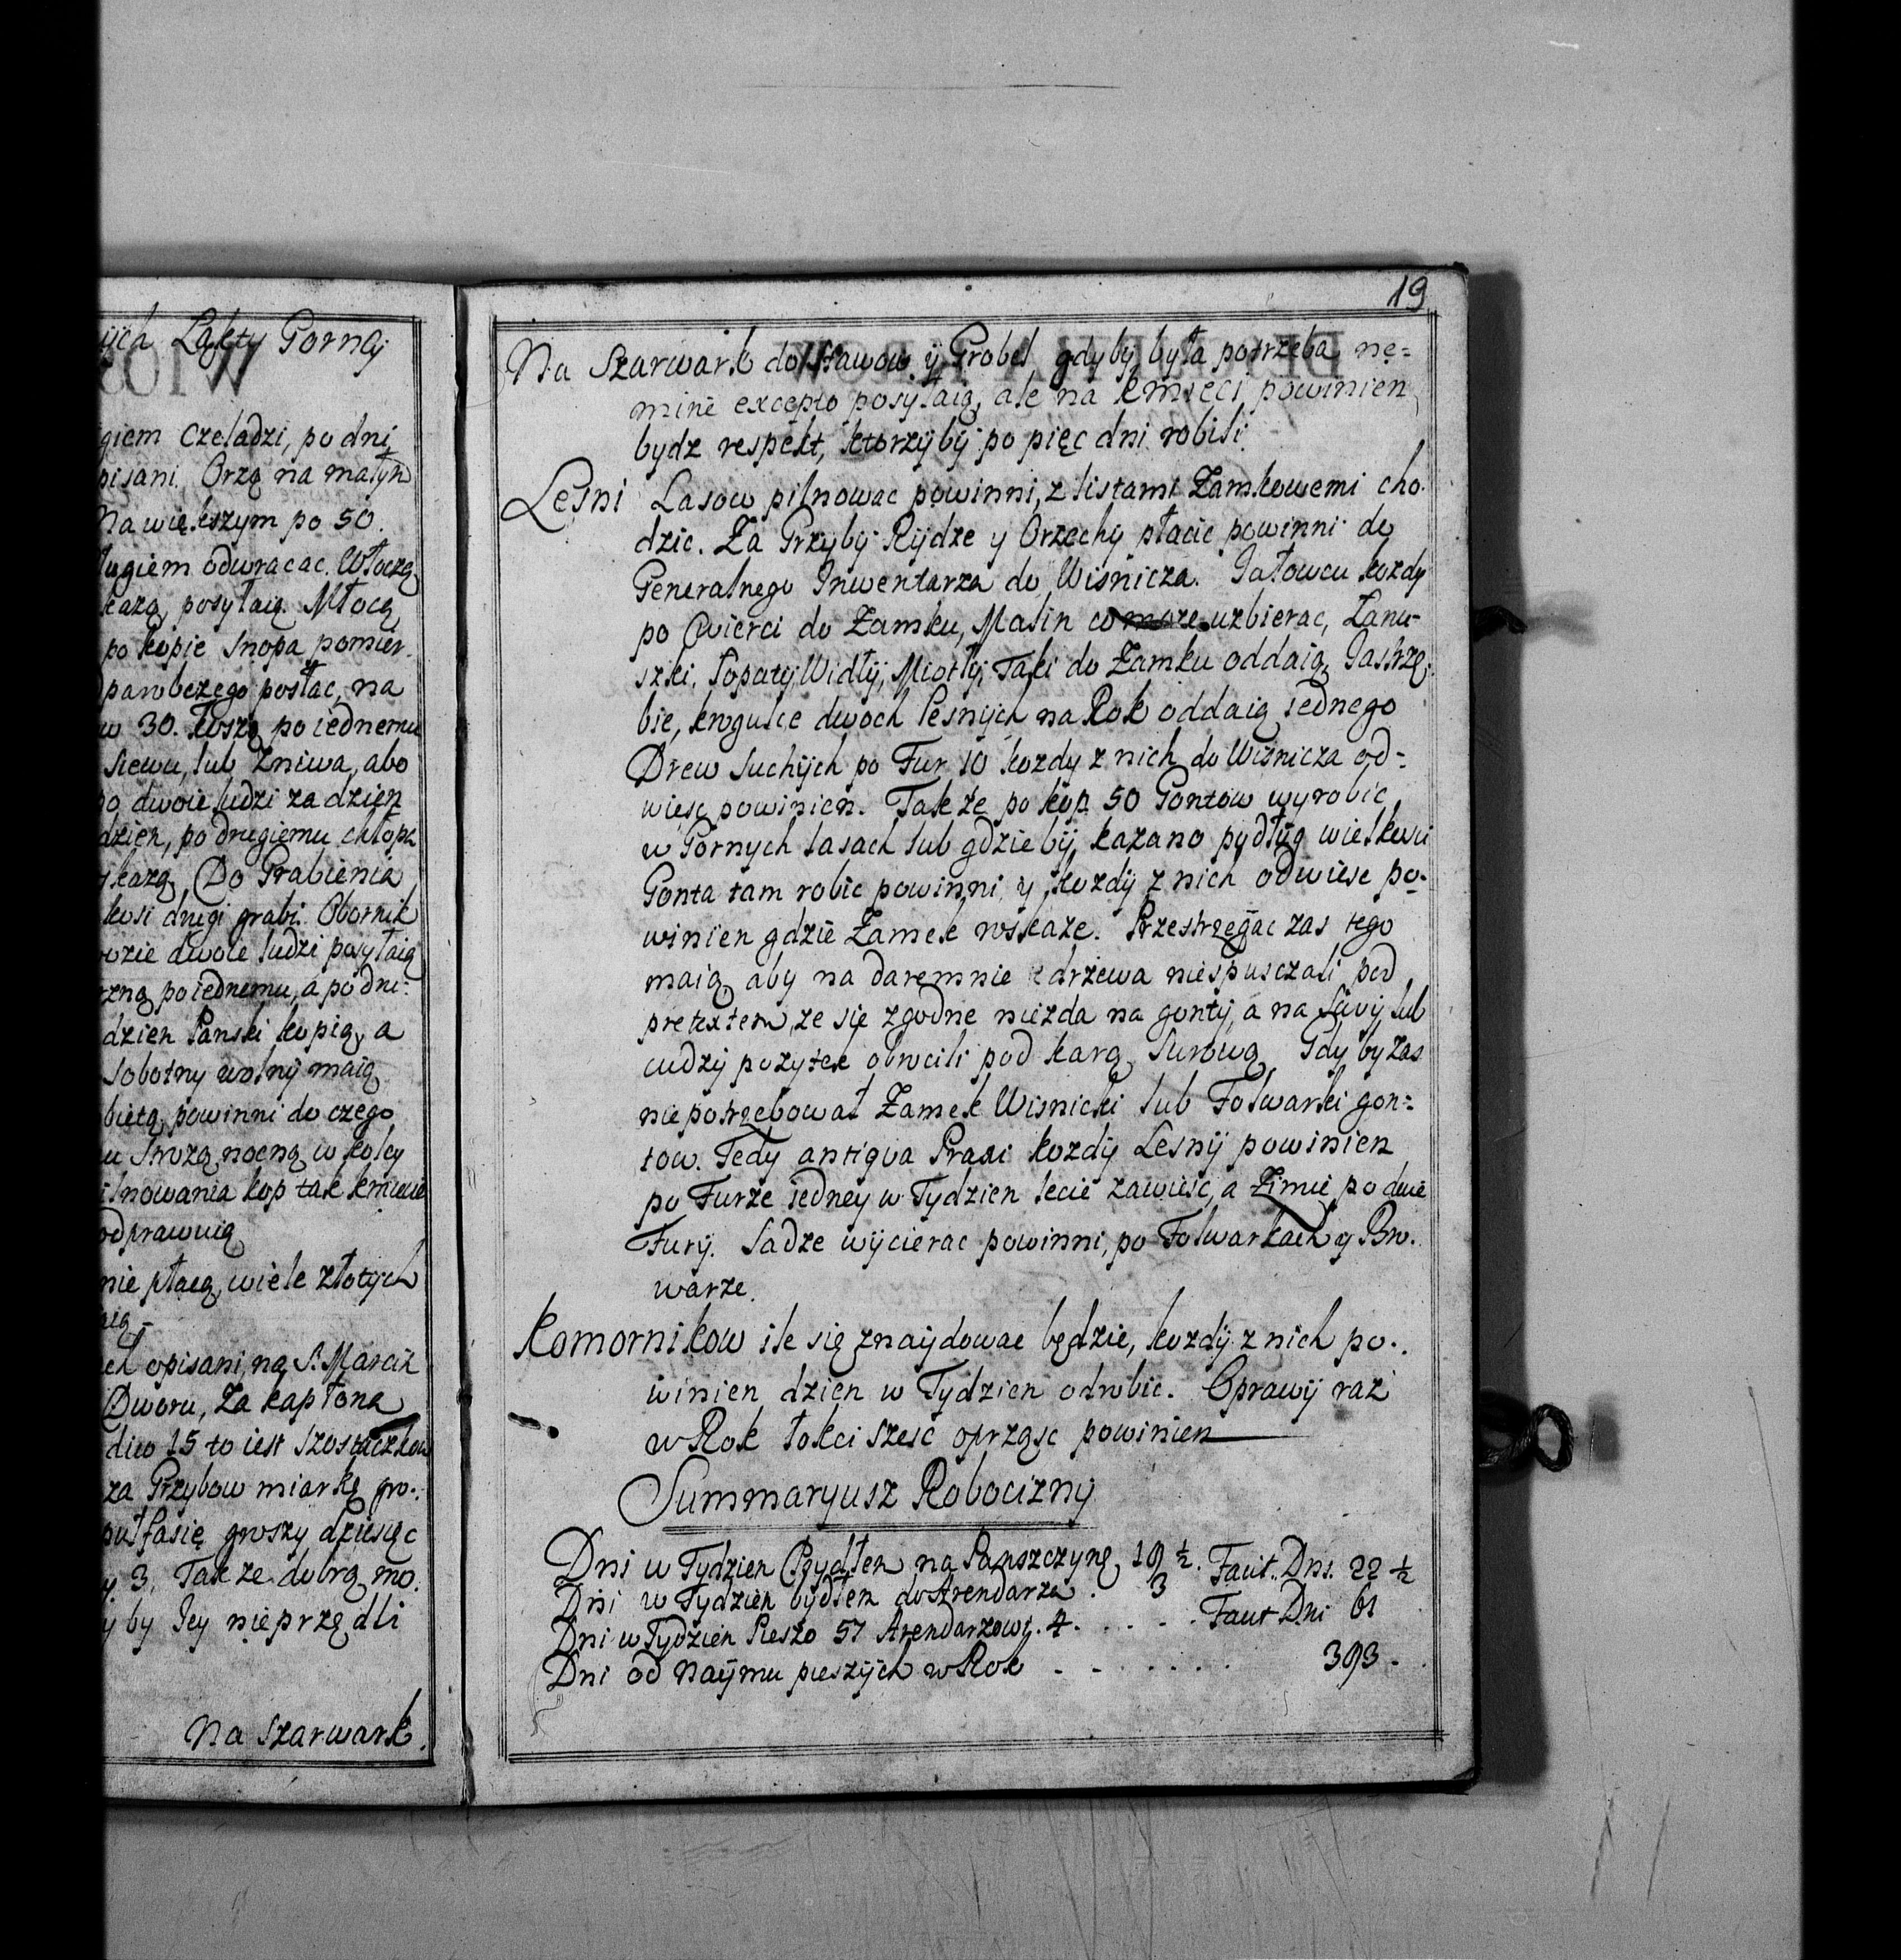 ych Łąkty Gornej
giem Czeladzi, po dni
pisani. Orzą na małym
Na większym po 50.
ługiem odwracac. Włoczą
każą, posyłaią. Młocą
po kopie snopa pomier.
parobczego posłac, na
w 30. koszą po iednemu
siewu, lub Zniwa, abo
po dwoie ludzi za dzien
dzien, po drugiemu chłopu
skażą, Do Grabienia
kosi drugi grabi. Obornik
dwoie ludzi posyłaią
po iednemu, a po dru:
dzien Panski kopią, a
Sobotny wolny maią
powinni do czego
u Strożą nocną w koley
ilnowania kop tak kmiecie
odprawuią
nie płacą, wiele złotych
ch opisani, na S. Marcin
Dworu, Za kapłona
15 to iest szostaczkow
za Grzybow miarkę gro.
groszy dziesięc
y 3. Takze dobrą mo.
y by Jey nie przędli
Na szarwark.
19
Na Szarwark do stawow y Grobel gdyby była potrzeba ne=
mine excepto posyłaią, ale na kmieci powinien
bydz respekt, ktorzyby po pięc dni robili
Leśni Lasow pilnowac powinni, z listami Zamkowemi cho.
dzic. Za Grzyby Rydze y Orzechy płacic powinni do
Generalnego Inwentarza do Wiśnicza. Jałowcu kozdy
po cwierci do Zamku, Malin co może uzbierac, Lanu-
szki, Łopaty, Widły, Miotły, Taki do Zamku oddaią, Jastrzę.
bie, krogulce dwoch leśnych na Rok oddaią iednego
Drew suchych po Fur 10 kozdy z nich do Wiśnicza od=
wieśc powinien. Takze po kop 50 Gontow wyrobic
w Gornych lasach lub gdzieby kazano podług wielkosci
Gonta tam robic powinni y kozdy z nich odwiese po.
winien gdzie Zamek wskaże. Przestrzegac zas tego
maią, aby na daremnie drzewa niespusczali pod
pretextem, ze się zgodne niezda na gonty, a na swoy lub
cudzy pozytek obrocili pod karą surową. Gdyby zas
niepotrzebował Zamek Wisnicki lub Folwarki gon=
tow. Tedy antiqua Praxi kozdy Leśny powinien
po Furze iedney w Tydzien lecie zawieśc, a Zimie po dwie
Fury. Sadze wycierac powinni, po Folwarkach y Bro.
warze.
Komornikow ile się znaydowac będzie, kozdy z nich po.
winien dzien w Tydzien odrobic. Oprawy raz
w Rok łokci sześc oprząśc powinien
Summaryusz Robocizny
Dni w Tydzien Bydłem na Panszczyznę 19 ½. Facit Dni. 22 ½
Dni w Tydzien bydłem do Arendarza . 3
Dni w Tydzien Pieszo 57 Arendarzowi. 4. . . . . Facit Dni 61
Dni od Naymu pieszych w Rok . . . . . . . 393.